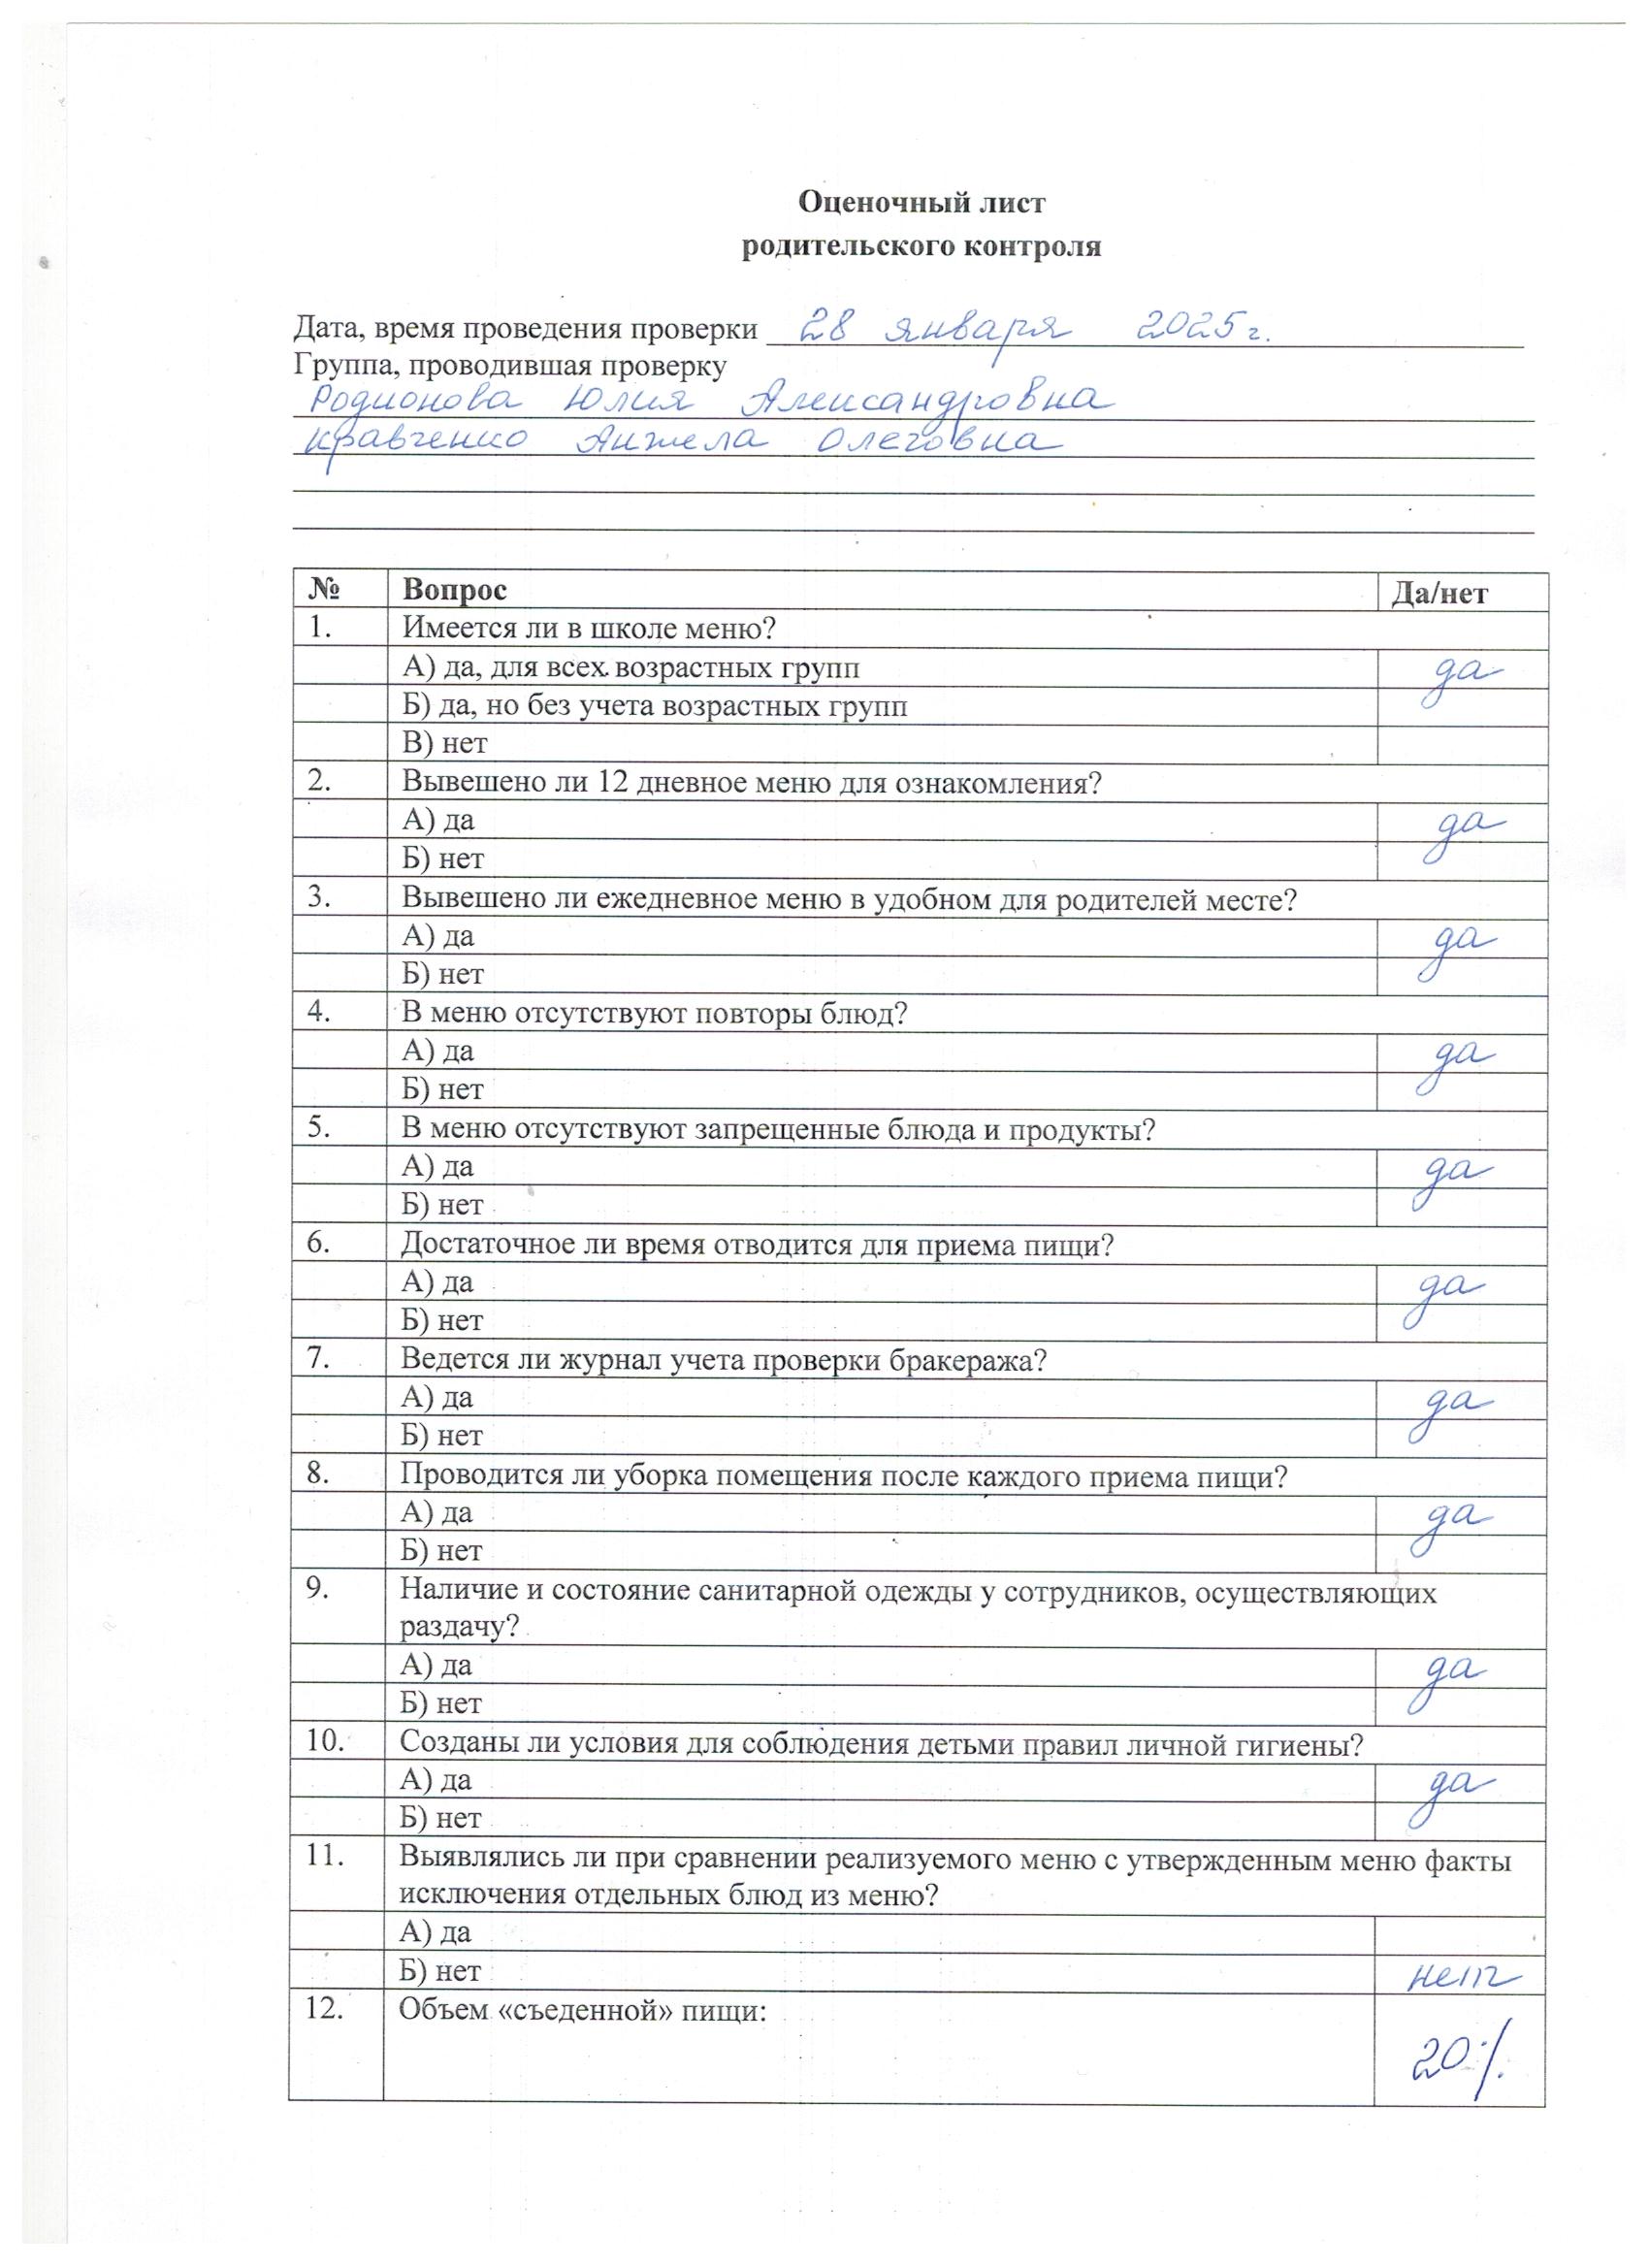 Оценочный лист
родительского контроля
Дата, время проведения проверки 28 января 2025 г.
Группа, проводившая проверку
Родионова Юлия Александровна
Кравченко Анжела Олеговна
№ Вопрос Да/нет
1. Имеется ли в школе меню?
А) да, для всех возрастных групп да
Б) да, но без учета возрастных групп
В) нет
2. Вывешено ли 12 дневное меню для ознакомления?
А) да да
Б) нет
3. Вывешено ли ежедневное меню в удобном для родителей месте?
А) да да
Б) нет
4. В меню отсутствуют повторы блюд?
А) да да
Б) нет
5. В меню отсутствуют запрещенные блюда и продукты?
А) да да
Б) нет
6. Достаточное ли время отводится для приема пищи?
А) да да
Б) нет
7. Ведется ли журнал учета проверки бракеража?
А) да да
Б) нет
8. Проводится ли уборка помещения после каждого приема пищи?
А) да да
Б) нет
9. Наличие и состояние санитарной одежды у сотрудников, осуществляющих
раздачу?
А) да да
Б) нет
10. Созданы ли условия для соблюдения детьми правил личной гигиены?
А) да да
Б) нет
11. Выявлялись ли при сравнении реализуемого меню с утвержденным меню факты
исключения отдельных блюд из меню?
А) да
Б) нет нет
12. Объем «съеденной» пищи:
20%